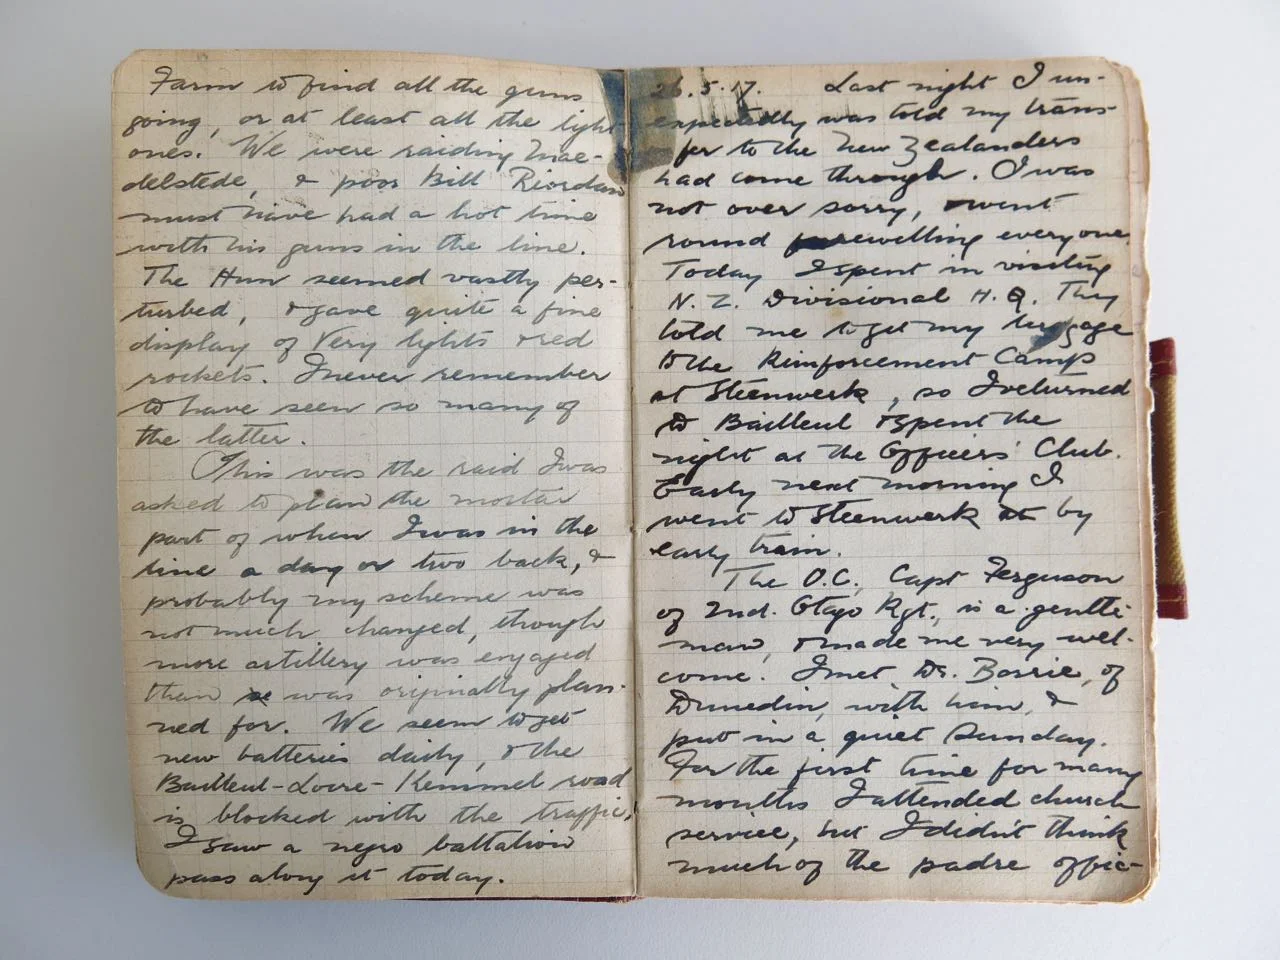 Farm to find all the guns
going, or at least all the light
ones. We were raiding Mae-
delstede, & poor Bill Riordan
must have had a hot time
with his guns in the line.
The Hun seemed vastly per-
turbed, & gave quite a fine
display of Very lights & red
rockets. I never remember
to have seen so many of
the latter.
This was the raid I was
asked to plan the mortar
part of when I was in the
line a day or two back, &
probably my scheme was
not much changed, though
more artillery was engaged
than was originally plan-
ned for. We seem to get
new batteries daily, & the
Bailleul-Locre-Kemmel road
is blocked with the traffic.
I saw a negro battalion
pass along it today.
26.5.17. Last night I un-
expectedly was told my trans-
fer to the New Zealanders
had come through. I was
not over sorry, went
round farewelling everyone.
Today I spent in visiting
N.Z. Divisional H.Q. They
told me to get my luggage
to the Reinforcement Camp
at Steenwerk, so I returned
to Bailleul & spent the
night at the Officers' Club.
Early next morning I
went to Steenwerk at by
early train.
The O.C., Capt Ferguson
of 2nd. Otago Rgt., is a gentle-
man, & made me very wel-
come. I met Dr. Borrie, of
Dunedin, with him, &
put in a quiet Sunday.
For the first time for many
months I attended church
service, but I didn't think
much of the padre offic-